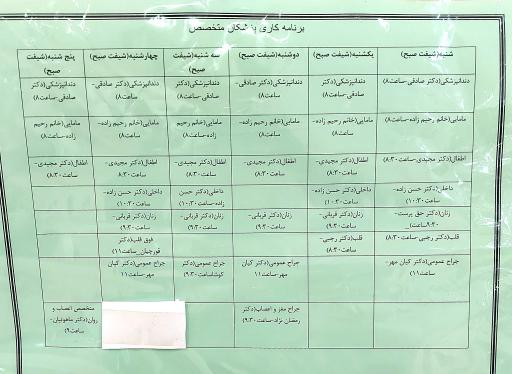 برنامه کاری پزشکان متخصص
شنبه(شیفت صبح)
یکشنبه(شیفت صبح)
دوشنبه(شیفت صبح)
سه شنبه(شیفت صبح)
چهارشنبه(شیفت صبح)
پنج شنبه(شیفت صبح)
دندانپزشکی(دکتر صادقی-ساعت۸)
دندانپزشکی(دکتر صادقی-ساعت۸)
دندانپزشکی(دکتر صادقی-ساعت۸)
دندانپزشکی(دکتر صادقی-ساعت۸)
دندانپزشکی(دکتر صادقی-ساعت۸)
دندانپزشکی(دکتر صادقی-ساعت۸)
مامایی(خانم رحیم زاده-ساعت۸)
مامایی(خانم رحیم زاده-ساعت۸)
مامایی(خانم رحیم زاده-ساعت۸)
مامایی(خانم رحیم زاده-ساعت۸)
مامایی(خانم رحیم زاده-ساعت۸)
مامایی(خانم رحیم زاده-ساعت۸)
اطفال(دکتر مجیدی-ساعت ۸:۳۰)
اطفال(دکتر مجیدی-ساعت۸:۳۰)
اطفال(دکتر مجیدی-ساعت۸:۳۰)
اطفال(دکتر مجیدی-ساعت۸:۳۰)
اطفال(دکتر مجیدی-ساعت۸:۳۰)
اطفال(دکتر مجیدی-ساعت۸:۳۰)
داخلی(دکتر حسن زاده-ساعت۱۰:۳۰)
داخلی(دکتر حسن زاده-ساعت۱۰:۳۰)
داخلی(دکتر حسن زاده-ساعت۱۰:۳۰)
زنان(دکتر حق پرست-ساعت۹:۳۰)
زنان(دکتر قربانی-ساعت۹:۳۰)
زنان(دکتر قربانی-ساعت۹:۳۰)
زنان(دکتر قربانی-ساعت۹:۳۰)
زنان(دکتر قربانی-ساعت۹:۳۰)
قلب(دکتر رجبی-ساعت۸:۳۰)
قلب(دکتر رجبی-ساعت۸:۳۰)
فوق قلب(دکتر قورچیان_ساعت۱۱)
جراح عمومی(دکتر کیان مهر-ساعت۱۱)
جراح عمومی(دکتر کیان مهر-ساعت۱۱)
جراح عمومی(دکتر ساعت۹:۳۰)
جراح عمومی(دکتر کیان مهر-ساعت۱۱)
جراح مغز و اعصاب(دکتر رمضان نژاد-ساعت۹:۳۰)
متخصص اعصاب و روان(دکتر ماهوتیان-ساعت۹)